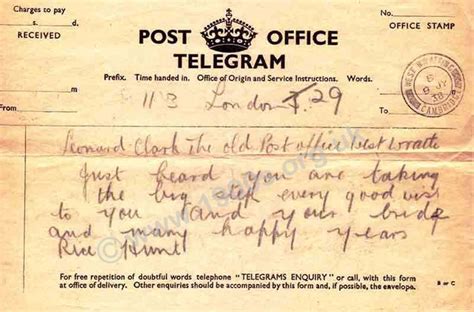 Charges to pay
s. d.
RECEIVED
POST OFFICE
TELEGRAM
No.
OFFICE STAMP
Prefix. Time handed in. Office of Origin and Service Instructions. Words.
113 London T. 29
WEST WRATTING
9 JY
38
CAMBRIDGE
Leonard Clark The old Post office West Wratti
Just heard you are taking
the big step every good wish
to you and your bride
and many happy years
Rice Hunt
© www.1900s.org.uk
For free repetition of doubtful words telephone "TELEGRAMS ENQUIRY" or call, with this form
at office of delivery. Other enquiries should be accompanied by this form and, if possible, the envelope.
B or C